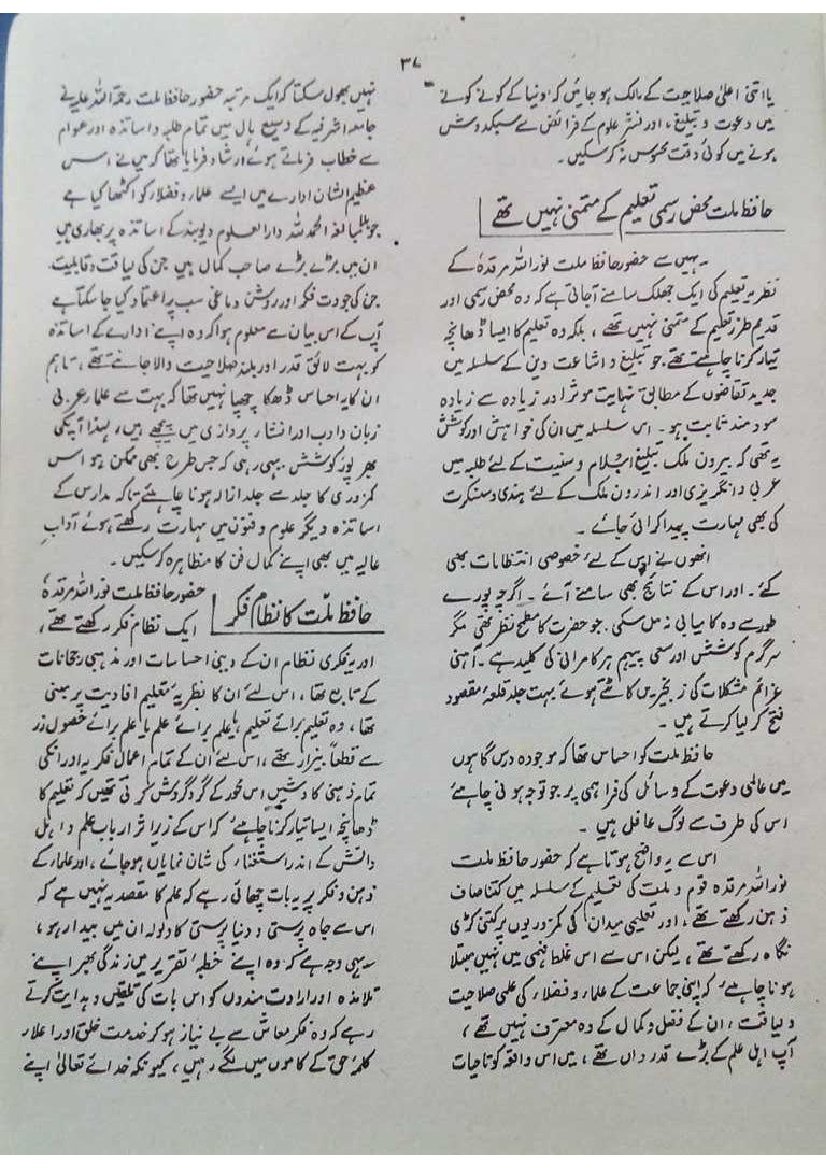 ۳۷
یا اتنی اعلیٰ صلاحیت کے مالک ہو جائیں کہ دنیا کے کونے کونے
میں دعوت و تبلیغ، اور نشر علوم کے فرائض سے سبکدوش
ہونے میں کوئی دقت محسوس نہ کر سکیں۔
حافظ ملت محض رسمی تعلیم کے متمنی نہیں تھے
یہیں سے حضور حافظ ملت نور اللہ مرقدہ کے
نظریۂ تعلیم کی ایک جھلک سامنے آجاتی ہے کہ وہ محض رسمی اور
قدیم طرز تعلیم کے متمنی نہیں تھے، بلکہ وہ تعلیم کا ایسا ڈھانچہ
تیار کرنا چاہتے تھے جو تبلیغ و اشاعت دین کے سلسلہ میں
جدید تقاضوں کے مطابق نہایت موثر اور زیادہ سے زیادہ
سود مند ثابت ہو۔ اس سلسلہ میں ان کی خواہش اور کوشش
یہ تھی کہ بیرون ملک تبلیغ اسلام و سنیت کے لئے طلبہ میں
عربی و انگریزی اور اندرون ملک کے لئے ہندی و سنسکرت
کی بھی مہارت پیدا کرائی جائے۔
انھوں نے اس کے لئے خصوصی انتظامات بھی
کئے۔ اور اس کے نتائج بھی سامنے آئے۔ اگرچہ پورے
طور سے وہ کامیابی نہ مل سکی جو حضرت کا مطمح نظر تھی مگر
سرگرم کوشش اور سعی پیہم ہر کامرانی کی کلید ہے۔ آہنی
عزائم مشکلات کی زنجیریں کاٹتے ہوئے بہت جلد قلعۂ مقصود
فتح کر لیا کرتے ہیں۔
حافظ ملت کو احساس تھا کہ موجودہ درس گاہوں
میں عالمی دعوت کے وسائل کی فراہمی پر جو توجہ ہونی چاہئے
اس کی طرف سے لوگ غافل ہیں۔
اس سے یہ واضح ہوتا ہے کہ حضور حافظ ملت
نور اللہ مرقدہ قوم و ملت کی تعلیم کے سلسلہ میں کتنا صاف
ذہن رکھتے تھے، اور تعلیمی میدان کی کمزوریوں پر کتنی کڑی
نگاہ رکھتے تھے، لیکن اس سے اس غلط فہمی میں نہیں مبتلا
ہونا چاہئے کہ اپنی جماعت کے علماء و فضلاء کی علمی صلاحیت
و لیاقت، ان کے فضل و کمال کے وہ معترف نہیں تھے،
آپ اہل علم کے بڑے قدرداں تھے، میں اس واقعہ کو تاحیات
نہیں بھول سکتا کہ ایک مرتبہ حضور حافظ ملت رحمۃ اللہ علیہ نے
جامعہ اشرفیہ کے وسیع ہال میں تمام طلبہ و اساتذہ اور عوام
سے خطاب فرماتے ہوئے ارشاد فرمایا تھا کہ میں نے اس
عظیم الشان ادارے میں ایسے علماء و فضلاء کو اکٹھا کیا ہے
جو بلا مبالغہ الحمد للہ دارالعلوم دیوبند کے اساتذہ پر بھاری ہیں
ان میں بڑے بڑے صاحب کمال ہیں جن کی لیاقت و قابلیت
جن کی جودت فکر اور روشن دماغی سب پر اعتماد کیا جا سکتا ہے
آپ کے اس بیان سے معلوم ہوا کہ وہ اپنے ادارے کے اساتذہ
کو بہت لائق قدر اور بلند صلاحیت والا جانتے تھے، تاہم
ان کا یہ احساس ڈھکا چھپا نہیں تھا کہ بہت سے علماء عربی
زبان و ادب اور انشاء پردازی میں پیچھے ہیں، لہذا آپ کی
بھر پور کوشش یہی رہی کہ جس طرح بھی ممکن ہو اس
کمزوری کا جلد سے جلد ازالہ ہونا چاہئے تاکہ مدارس کے
اساتذہ دیگر علوم و فنون میں مہارت رکھتے ہوئے آداب
عالیہ میں بھی اپنے کمال فن کا مظاہرہ کر سکیں۔
حافظ ملت کا نظام فکر
حضور حافظ ملت نور اللہ مرقدہ
ایک نظام فکر رکھتے تھے،
اور یہ فکری نظام ان کے دینی احساسات اور مذہبی رجحانات
کے تابع تھا، اس لئے ان کا نظریۂ تعلیم افادیت پر مبنی
تھا، وہ تعلیم برائے تعلیم یا علم برائے علم یا علم برائے حصول زر
سے قطعاً بیزار تھے، اس لئے ان کے تمام اعمال فکریہ اور انکی
تمام ذہنی کاوشیں اس محور کے گرد گردش کرتی تھیں کہ تعلیم کا
ڈھانچہ ایسا تیار کرنا چاہئے کہ اس کے زیر اثر ارباب علم و اہل
دانش کے اندر استغناء کی شان نمایاں ہو جائے، اور علماء کے
ذہن و فکر پر یہ بات چھائی رہے کہ علم کا مقصد یہ نہیں ہے کہ
اس سے جاہ پرستی و دنیا پرستی کا ولولہ ان میں بیدار ہو،
یہی وجہ ہے کہ وہ اپنے خطبۂ تقریر میں زندگی بھر اپنے
تلامذہ اور ارادت مندوں کو اس بات کی تلقین و ہدایت کرتے
رہے کہ وہ فکر معاش سے بے نیاز ہو کر خدمت خلق اور اعلاء
کلمۂ حق کے کاموں میں لگے رہیں، کیونکہ خدائے تعالیٰ اپنے